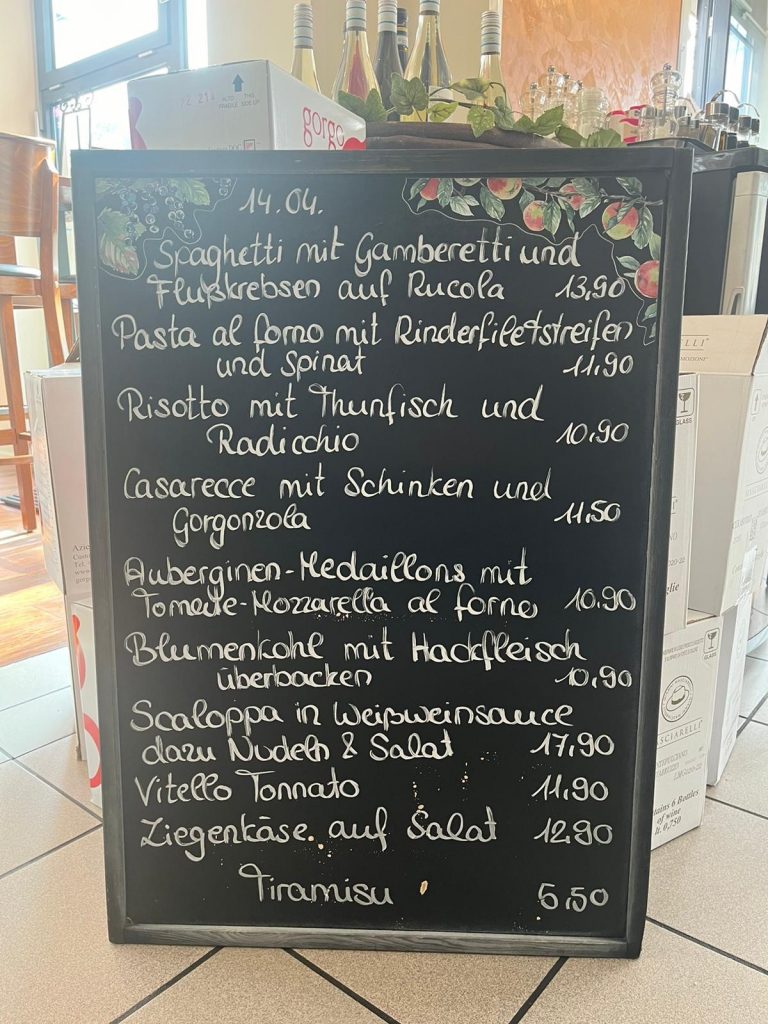 gorgo
14.04.
Spaghetti mit Gamberetti und
Flußkrebsen auf Rucola 13,90
Pasta al forno mit Rinderfiletstreifen
und Spinat 11,90
Risotto mit Thunfisch und
Radicchio 10,90
Casarecce mit Schinken und
Gorgonzola 11,50
Auberginen-Medaillons mit
Tomate-Mozzarella al forno 10,90
Blumenkohl mit Hackfleisch
überbacken 10,90
Scaloppa in Weißweinsauce
dazu Nudeln & Salat 17,90
Vitello Tonnato 11,90
Ziegenkäse auf Salat 12,90
Tiramisu 5,50
GLASS
GLASS
6 Bottles
of wine
lt. 0,750